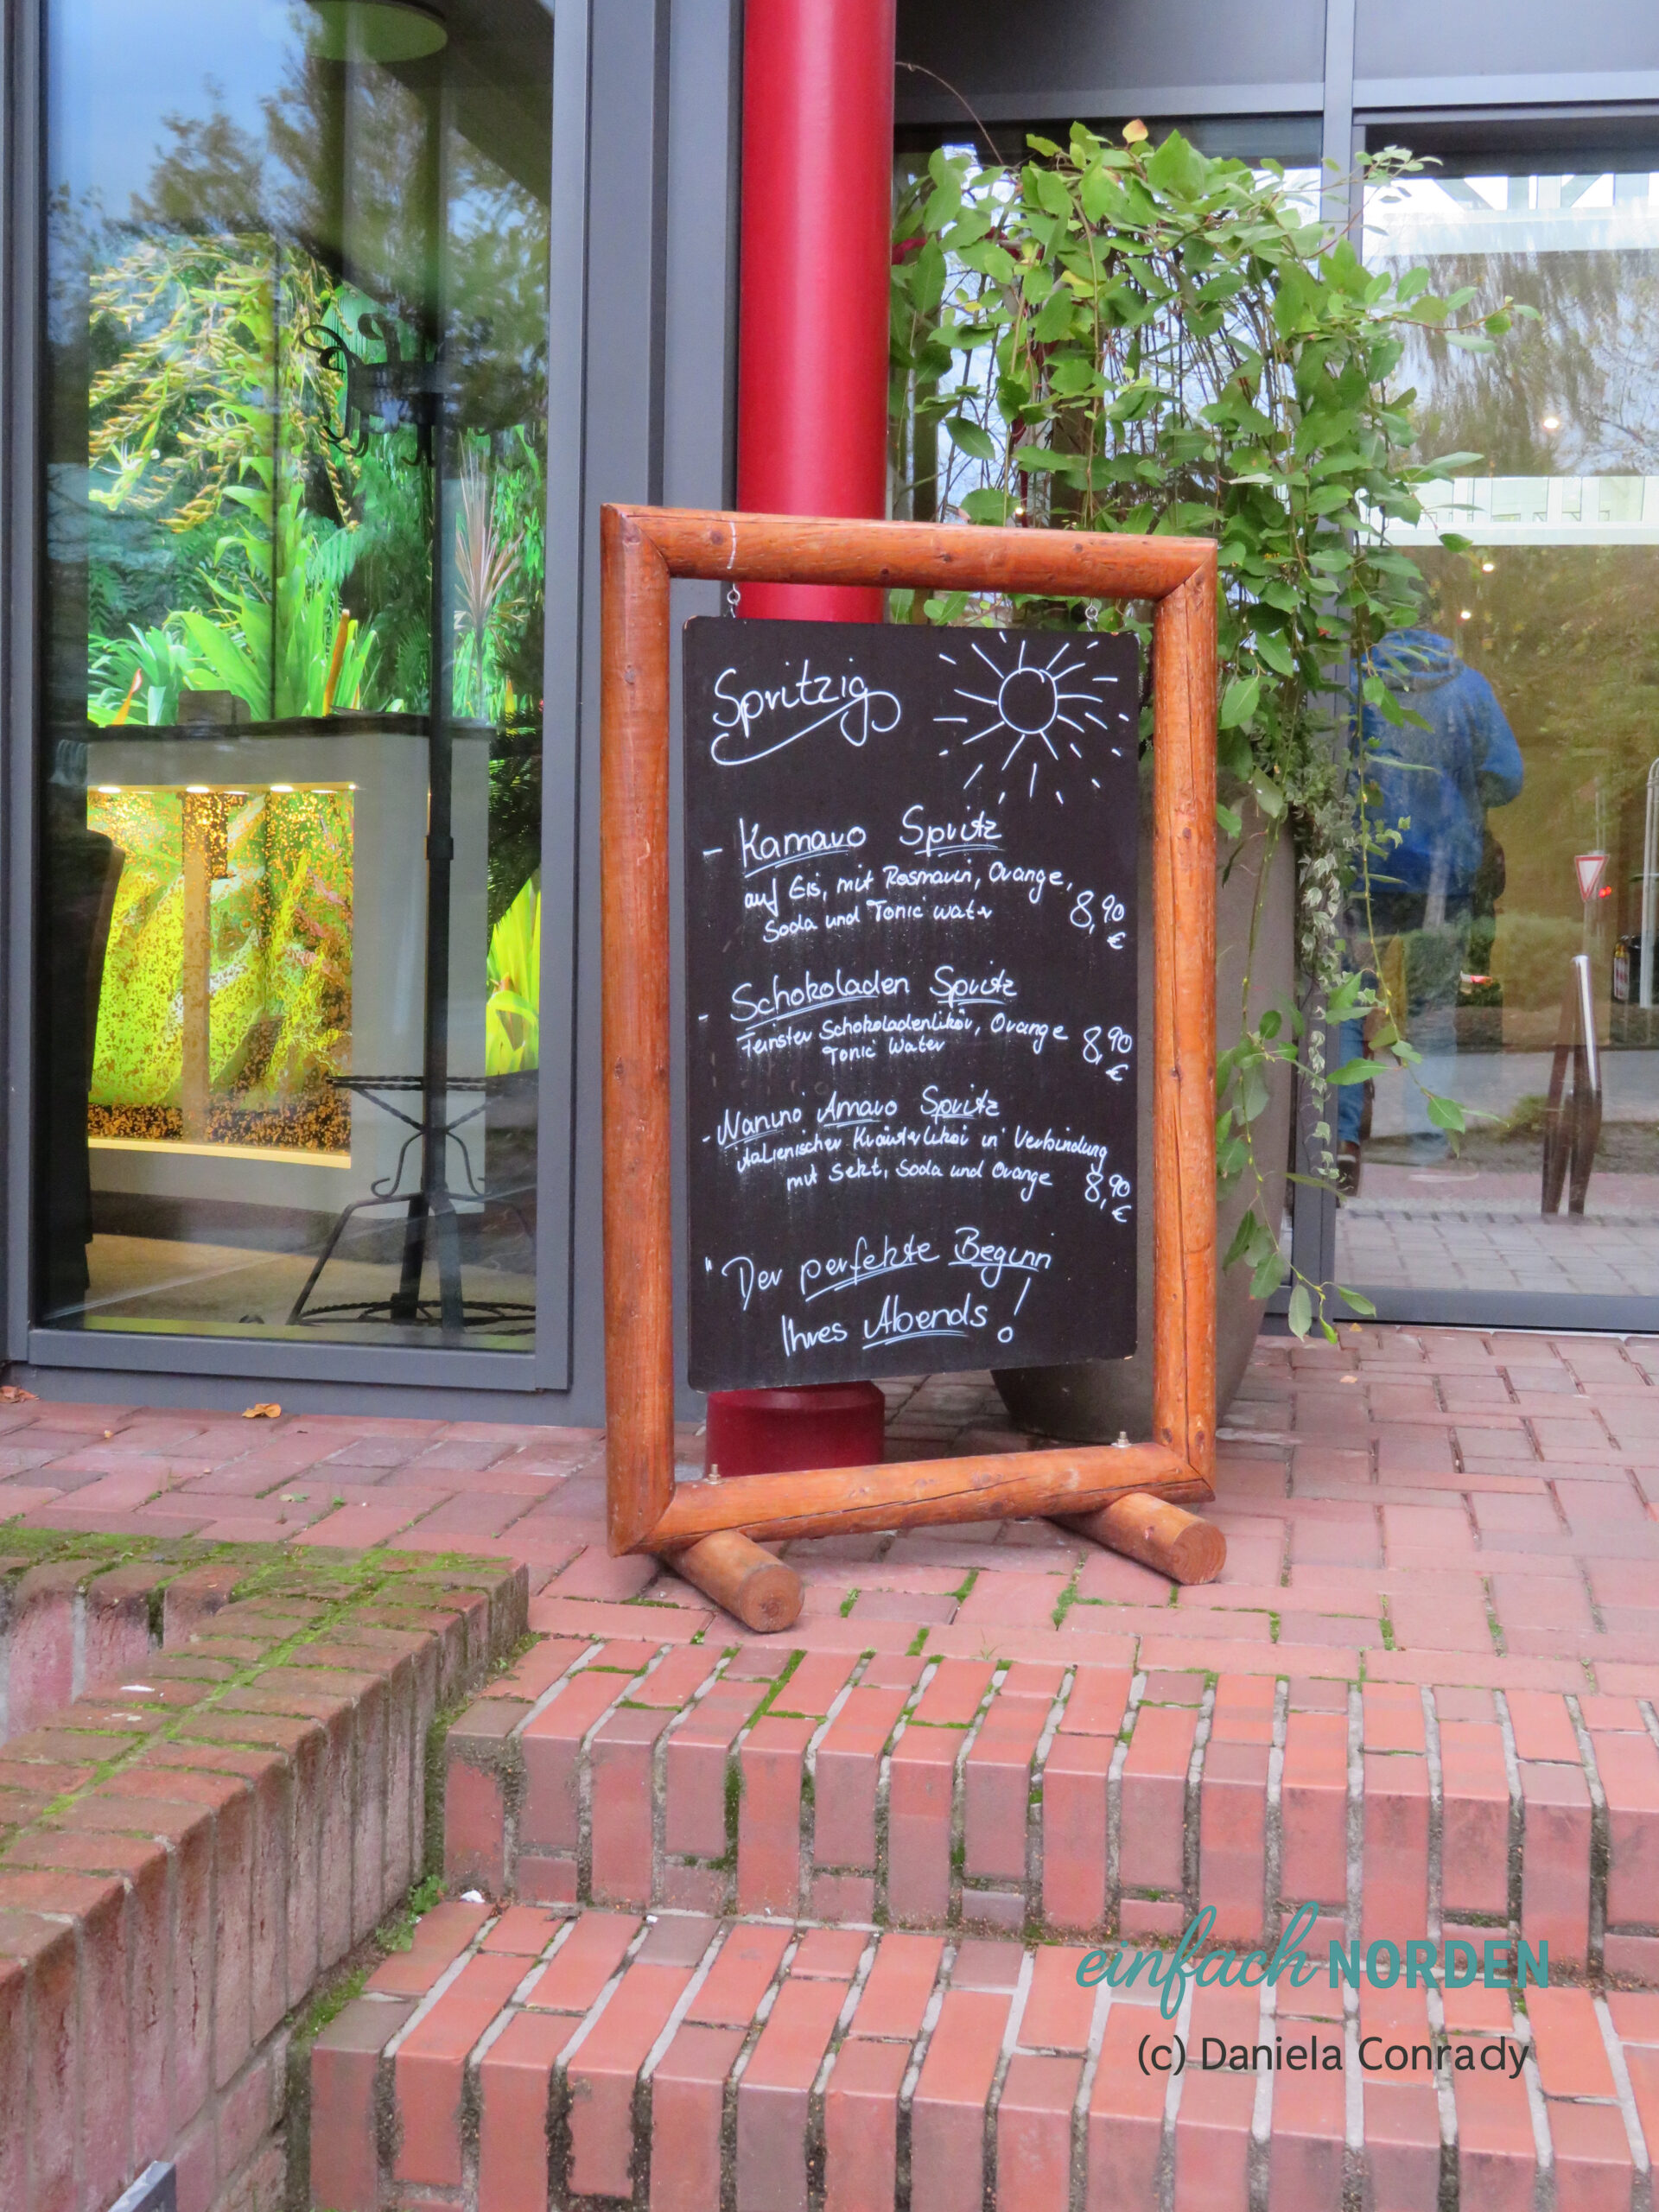 Spritzig
- Kamaro Spritz
auf Eis, mit Rosmarin, Orange,
Soda und Tonic Water
8,90
€
- Schokoladen Spritz
Feinster Schokoladenlikör, Orange
Tonic Water
8,90
€
- Nanino Amaro Spritz
italienischer Kräuterlikör in Verbindung
mit Sekt, Soda und Orange
8,90
€
" Der perfekte Beginn
Ihres Abends!
einfach NORDEN
(c) Daniela Conrady